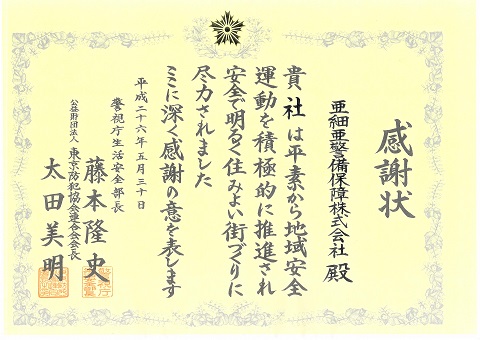 感謝状
亜細亜警備保障株式会社 殿
貴社は平素から地域安全
運動を積極的に推進され
安全で明るく住みよい街づくりに
尽力されました
ここに深く感謝の意を表します
平成二十六年五月三十日
警視庁生活安全部長
藤本隆史
公益財団法人 東京防犯協会連合会会長
太田美明